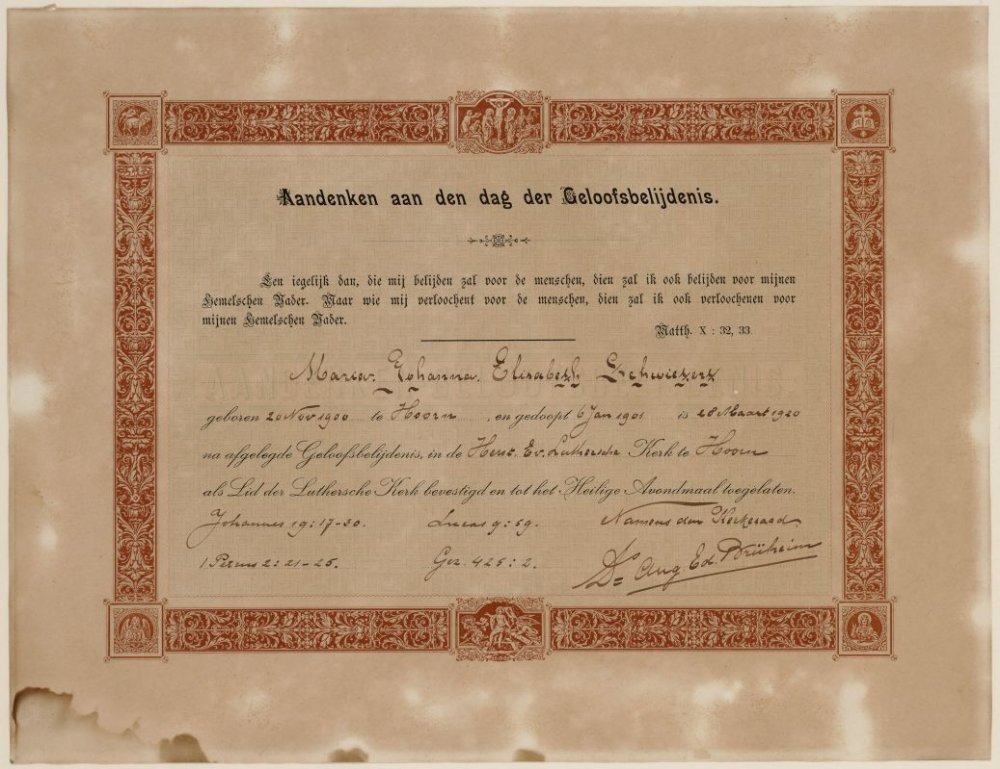 Aandenken aan den dag der Geloofsbelijdenis.
Een iegelijk dan, die mij belijden zal voor de menschen, dien zal ik ook belijden voor mijnen
Hemelschen Vader. Maar wie mij verloochent voor de menschen, dien zal ik ook verloochenen voor
mijnen Hemelschen Vader.
Matth. X : 32, 33.
Maria Johanna Elisabeth
geboren 20 Nov 1900 te Hoorn, en gedoopt 6 Jan 1901 is 28 Maart 1920
na afgelegde Geloofsbelijdenis, in de Herst. Ev. Luthersche Kerk te Hoorn
als Lid der Luthersche Kerk bevestigd en tot het Heilige Avondmaal toegelaten.
Johannes 19:17-30. Lucas 9:59. Namens den Kerkeraad
1 Petrus 2:21-25. Gez. 425:2. Ds Aug Ed.